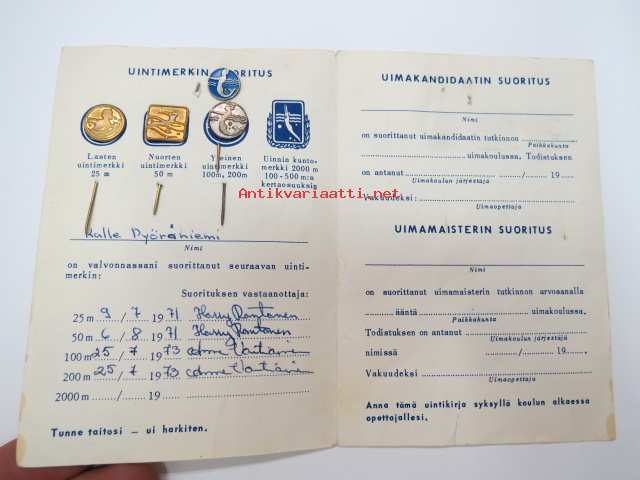 UINTIMERKIN SUORITUS
Lasten uintimerkki 25 m
Nuorten uintimerkki 50 m
Yleinen uintimerkki 100m, 200m
Uinnin kunto-merkki 2000 m 100-500 m:n kertaosuuksin
Antikvariaatti.net
Kalle Pyöräniemi
Nimi
on valvonnassani suorittanut seuraavan uinti-
merkin:
Suorituksen vastaanottaja:
25 m 9 / 7 1971 Harry Rantanen
50 m 6 / 8 1971 Harry Rantanen
100 m 25 / 7 1973
200 m 25 / 7 1973
2000 m ......../........ 19....
Tunne taitosi — ui harkiten.
UIMAKANDIDAATIN SUORITUS
Nimi
on suorittanut uimakandidaatin tutkinnon
Paikkakunta
uimakoulussa. Todistuksen
on antanut ......../........ 19....
Uimakoulun järjestäjä
Vakuudeksi:
Uimaopettaja
UIMAMAISTERIN SUORITUS
Nimi
on suorittanut uimamaisterin tutkinnon arvosanalla
ääntä uimakoulussa.
Paikkakunta
Todistuksen on antanut
Uimakoulun järjestäjä
nimissä ......../........ 19....
Vakuudeksi
Uimaopettaja
Anna tämä uintikirja syksyllä koulun alkaessa
opettajallesi.